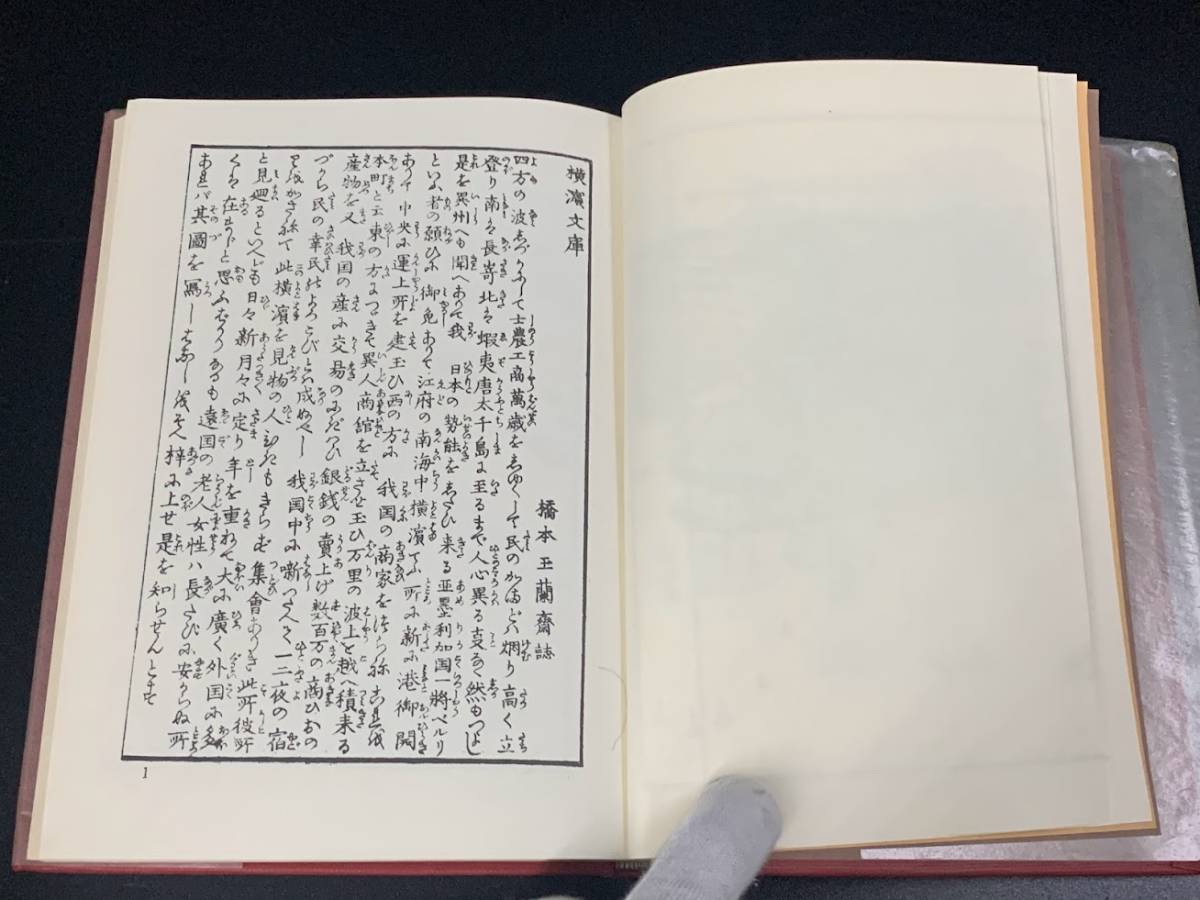 横濱文庫
橋本玉蘭齋誌
四方の波志づかにして士農工商萬歳を志ゆくして民のかまどハ烟り高く立
登り南ハ長嵜北ハ蝦夷唐太千島に至るまで人心異る事なく然もつよし
是を異州へも聞へありて我 日本の勢能を志たひ来る亜墨利加国一將ペルリ
といふ者の願ひに御免ありて江府の南海中横濱てふ所に新に港御開
ありて中央に運上所を建玉ひ西の方に 我国の商家をつらね
本町と云東の方につゞきて異人商館を立させ玉ひ万里の波上を越へ積来る
産物を又 我国の産に交易のにぎハひ銀銭の賣上げ数百万の商ひおの
づから民の幸民のよろこびとハ成ぬべし 我国中に噺つたへて一二夜の宿
りをかさねて此横濱を見物の人ひきもきらず集會ありき此所彼所
と見廻るといへども日々新月々に定り年を重ねて大に廣く外国に多
くハ在まじと思ふばかりなるも遠国の老人女性ハ長たびに安からぬ所
あれバ其圖を寫し をそへ梓に上せ是を知らせんと
1